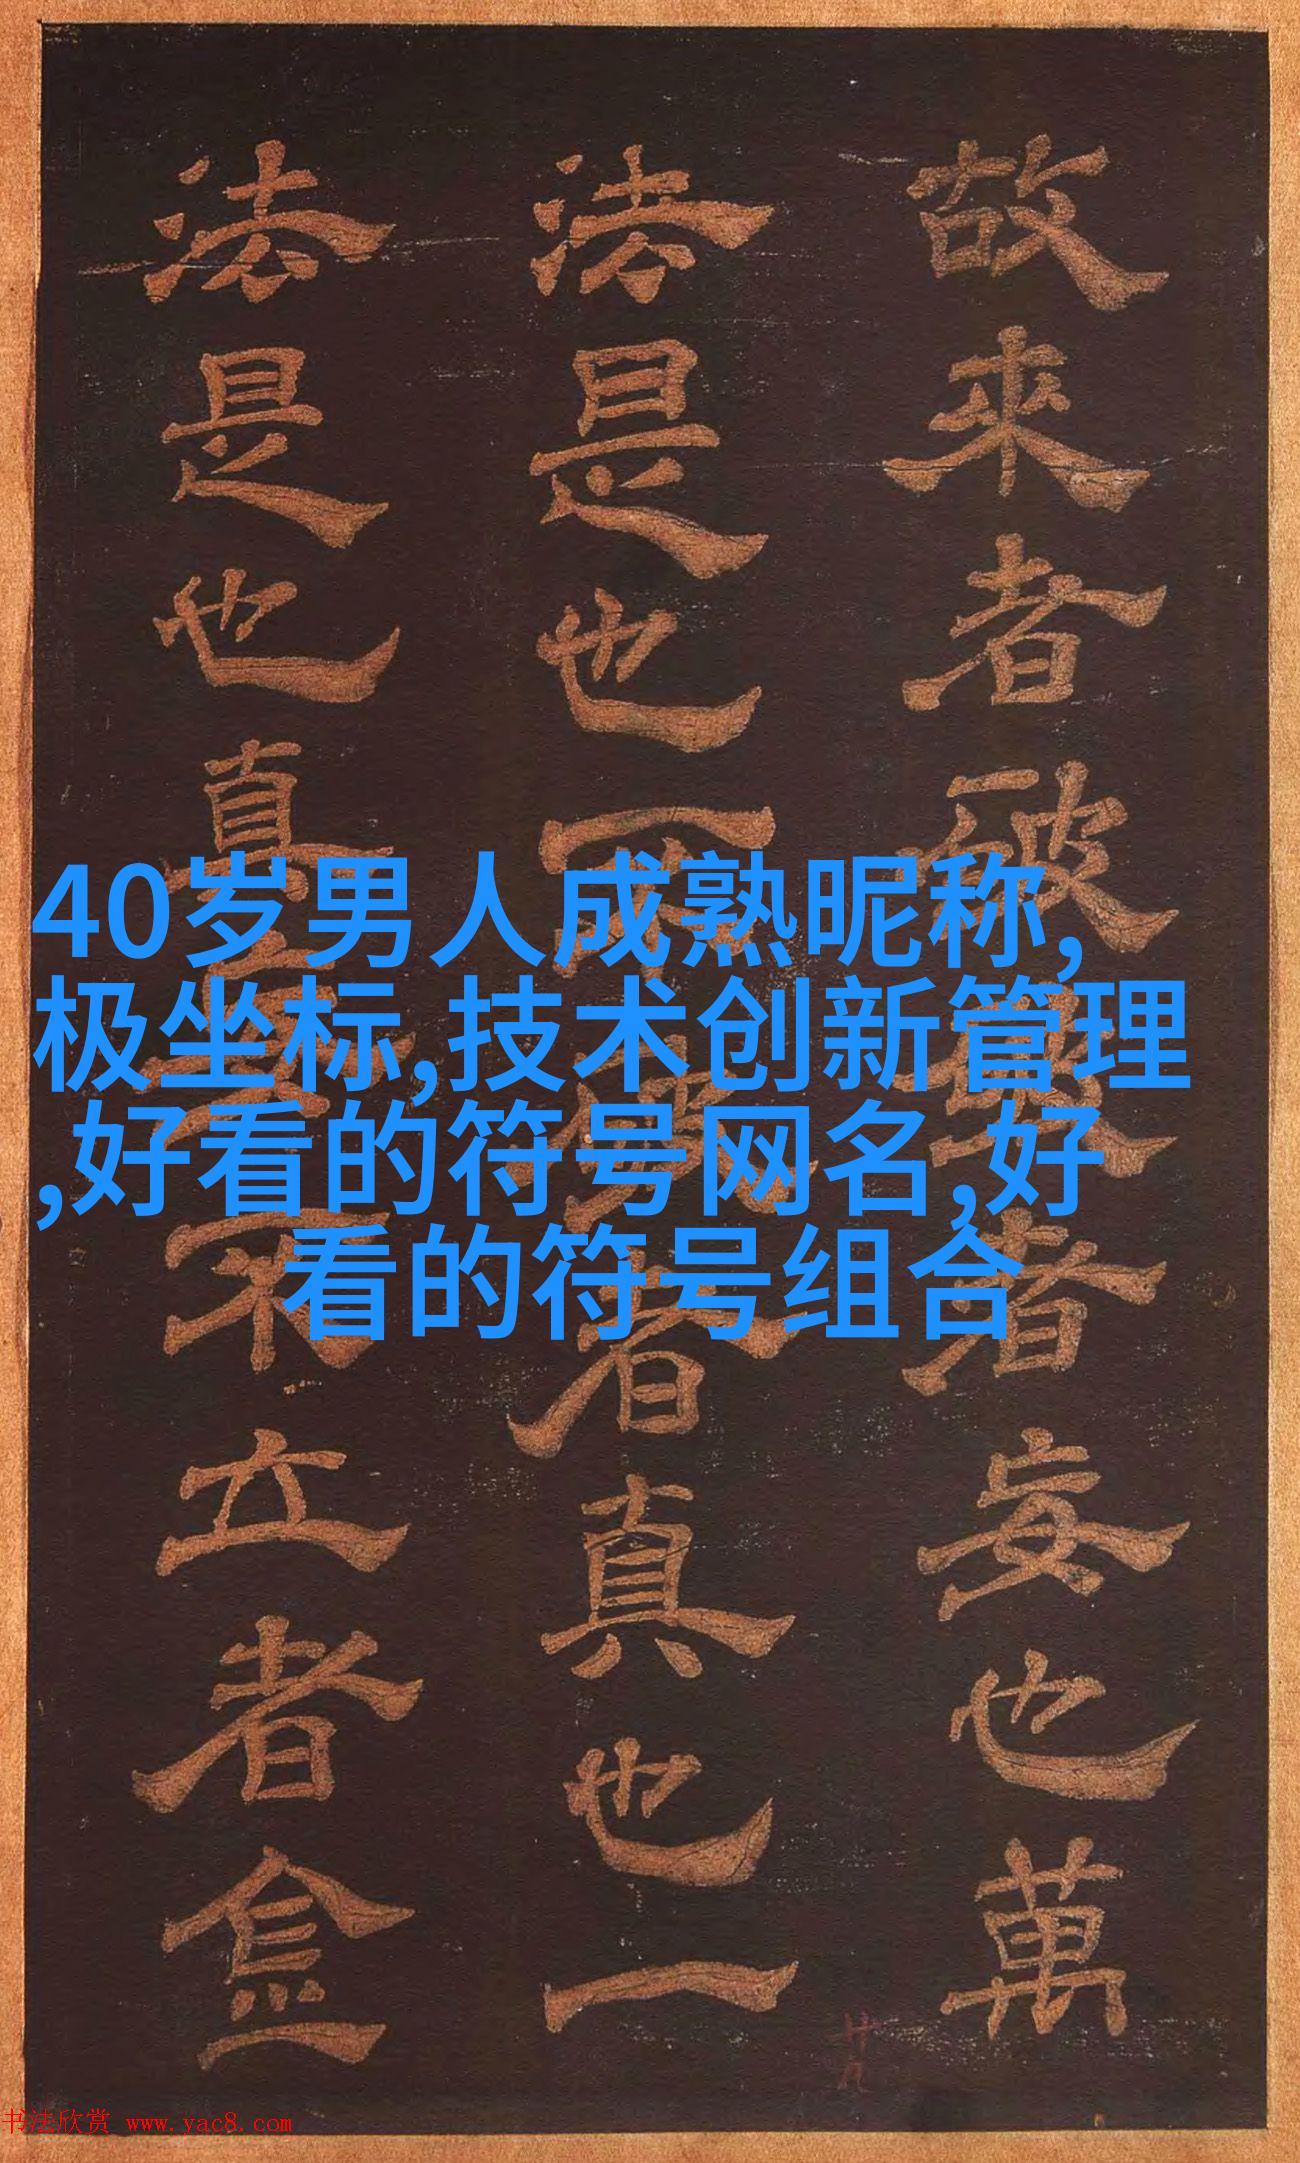 故來者破者妄也萬
法是也不者真也一
法是也真不立者
40岁男人成熟昵称,
极坐标,技术创新管理
,好看的符号网名,好
看的符号组合
书法欣赏 www.yac8.com